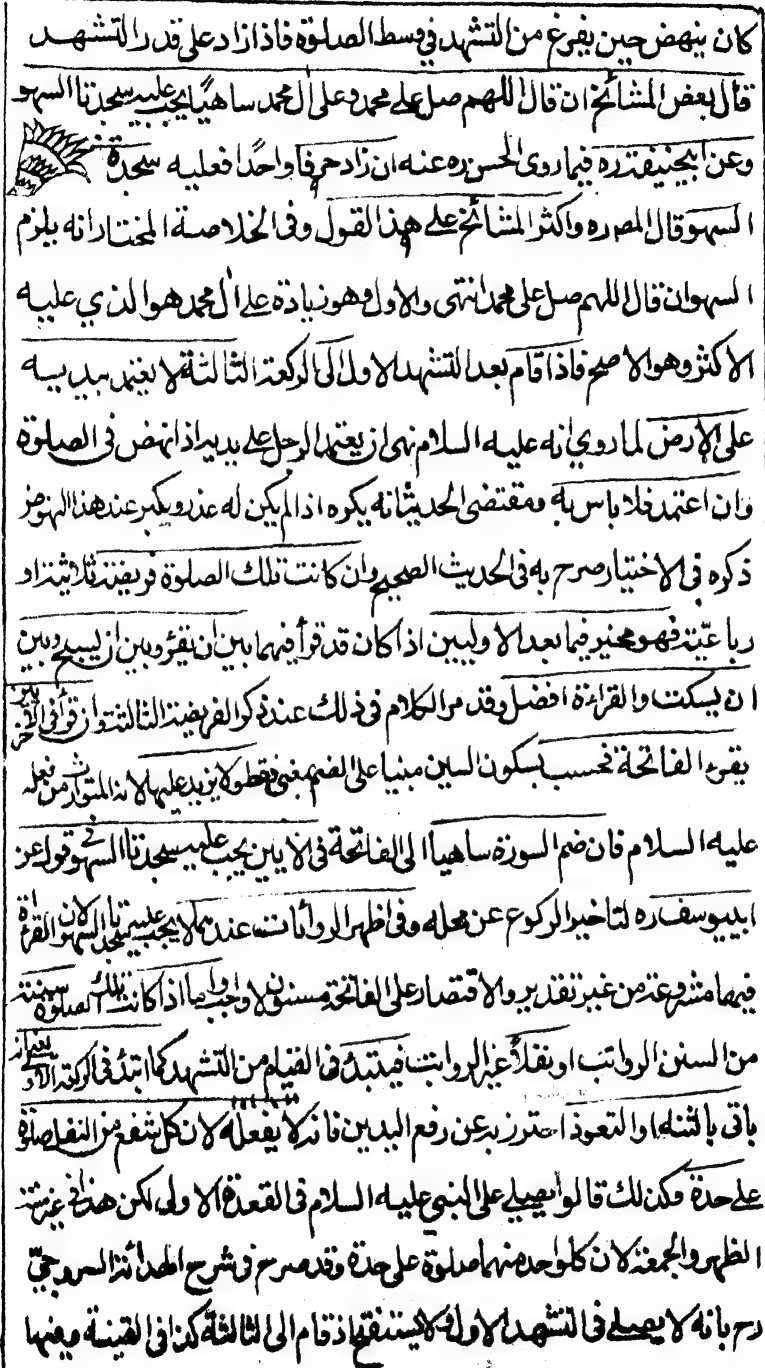 كان ينهض حين يفرغ من التشهد في وسط الصلوة فاذا زاد على قدر التشهد
قال بعض المشائخ ان قال اللهم صل على محمد وعلى ال محمد ساهيًا يجب عليه سجدتا السهو
وعن ابيحنيفة ره فيما روى الحسن ره عنه ان زاد حرفا واحدًا فعليه سجدة
السهو قال المص ره واكثر المشائخ على هذا القول وفى الخلاصة المختار انه يلزم
السهو ان قال اللهم صل على محمد انتهى والاول وهو زيادة على ال محمد هو الذي عليه
الاكثر وهو الاصح فاذا قام بعد التشهد الاول الى الركعة الثالثة لا يعتمد بيديه
على الارض لما روي انه عليه السلام نهى ان يعتمد الرجل على يديه اذا نهض فى الصلوة
وان اعتمد فلا باس به ومقتضى الحديث انه يكره اذا لم يكن له عذر ويكبر عند هذا النهوض
ذكره فى الاختيار صرح به فى الحديث الصحيح وان كانت تلك الصلوة فريضة ثلاثية او
رباعيّة فهو مخير فيما بعد الاوليين اذا كان قد قرأ فيهما بين ان يقرؤ وبين ان يسبح وبين
ان يسكت والقراءة افضل وقد مر الكلام فى ذلك عند ذكر الفريضة الثالثة وان قرأ فى الاخريين
يقرء الفاتحة فحسب بسكون السين مبنيا على الضم بمعنى فقط ولا يزيد عليها لانه المتوارث من فعله
عليه السلام فان ضم السورة ساهياً الى الفاتحة فى الاخريين يجب عليه سجدتا السهو فى قول عن
ابييوسف ره لتاخير الركوع عن محله وفى اظهر الروايات عندهما لا يجب عليه سجدتا السهو لان القراءة
فيهما مشروعة من غير تقدير والاقتصار على الفاتحة مسنون لا واجب واما اذا كانت تلك الصلوة سنة
من السنن الرواتب او نفلاً غير الرواتب فيبتدئ فى القيام من التشهد كما ابتدئ فى الركعة الاولى يعنى انه
ياتى بالثناء والتعوذ احترز به عن رفع اليدين فانه لا يفعله لان كل شفع من النفل صلوة
على حدة وكذلك قالوا يصلى على النبي عليه السلام فى القعدة الاولى لكن هذا فى غير سنة
الظهر والجمعة لان كل واحد منهما صلوة على حدة وقد صرح فى شرح الهداية السروجيّ
رح بانه لا يصلى فى التشهد الاول ولا يستفتح اذ قام الى الثالثة كذا فى القنية ومنها